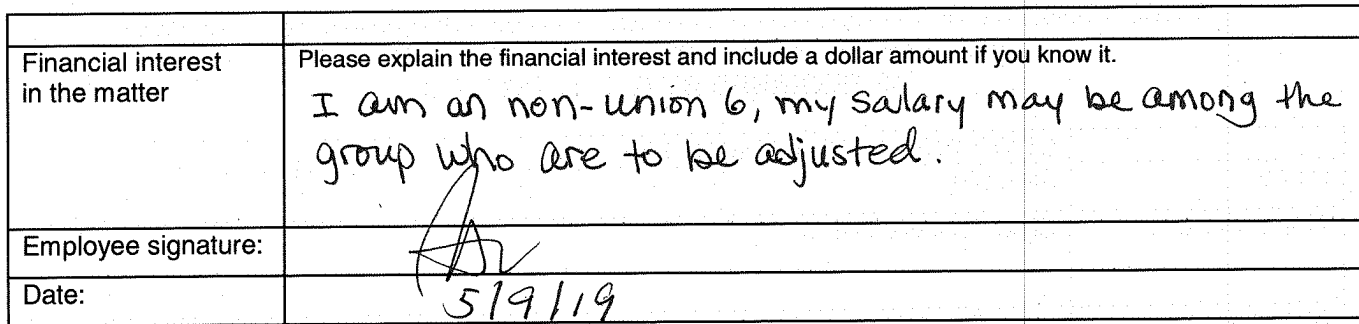 Financial interest
in the matter
Please explain the financial interest and include a dollar amount if you know it.
I am an non-union 6, my salary may be among the
group who are to be adjusted.
Employee signature:
Date:
5/9/19